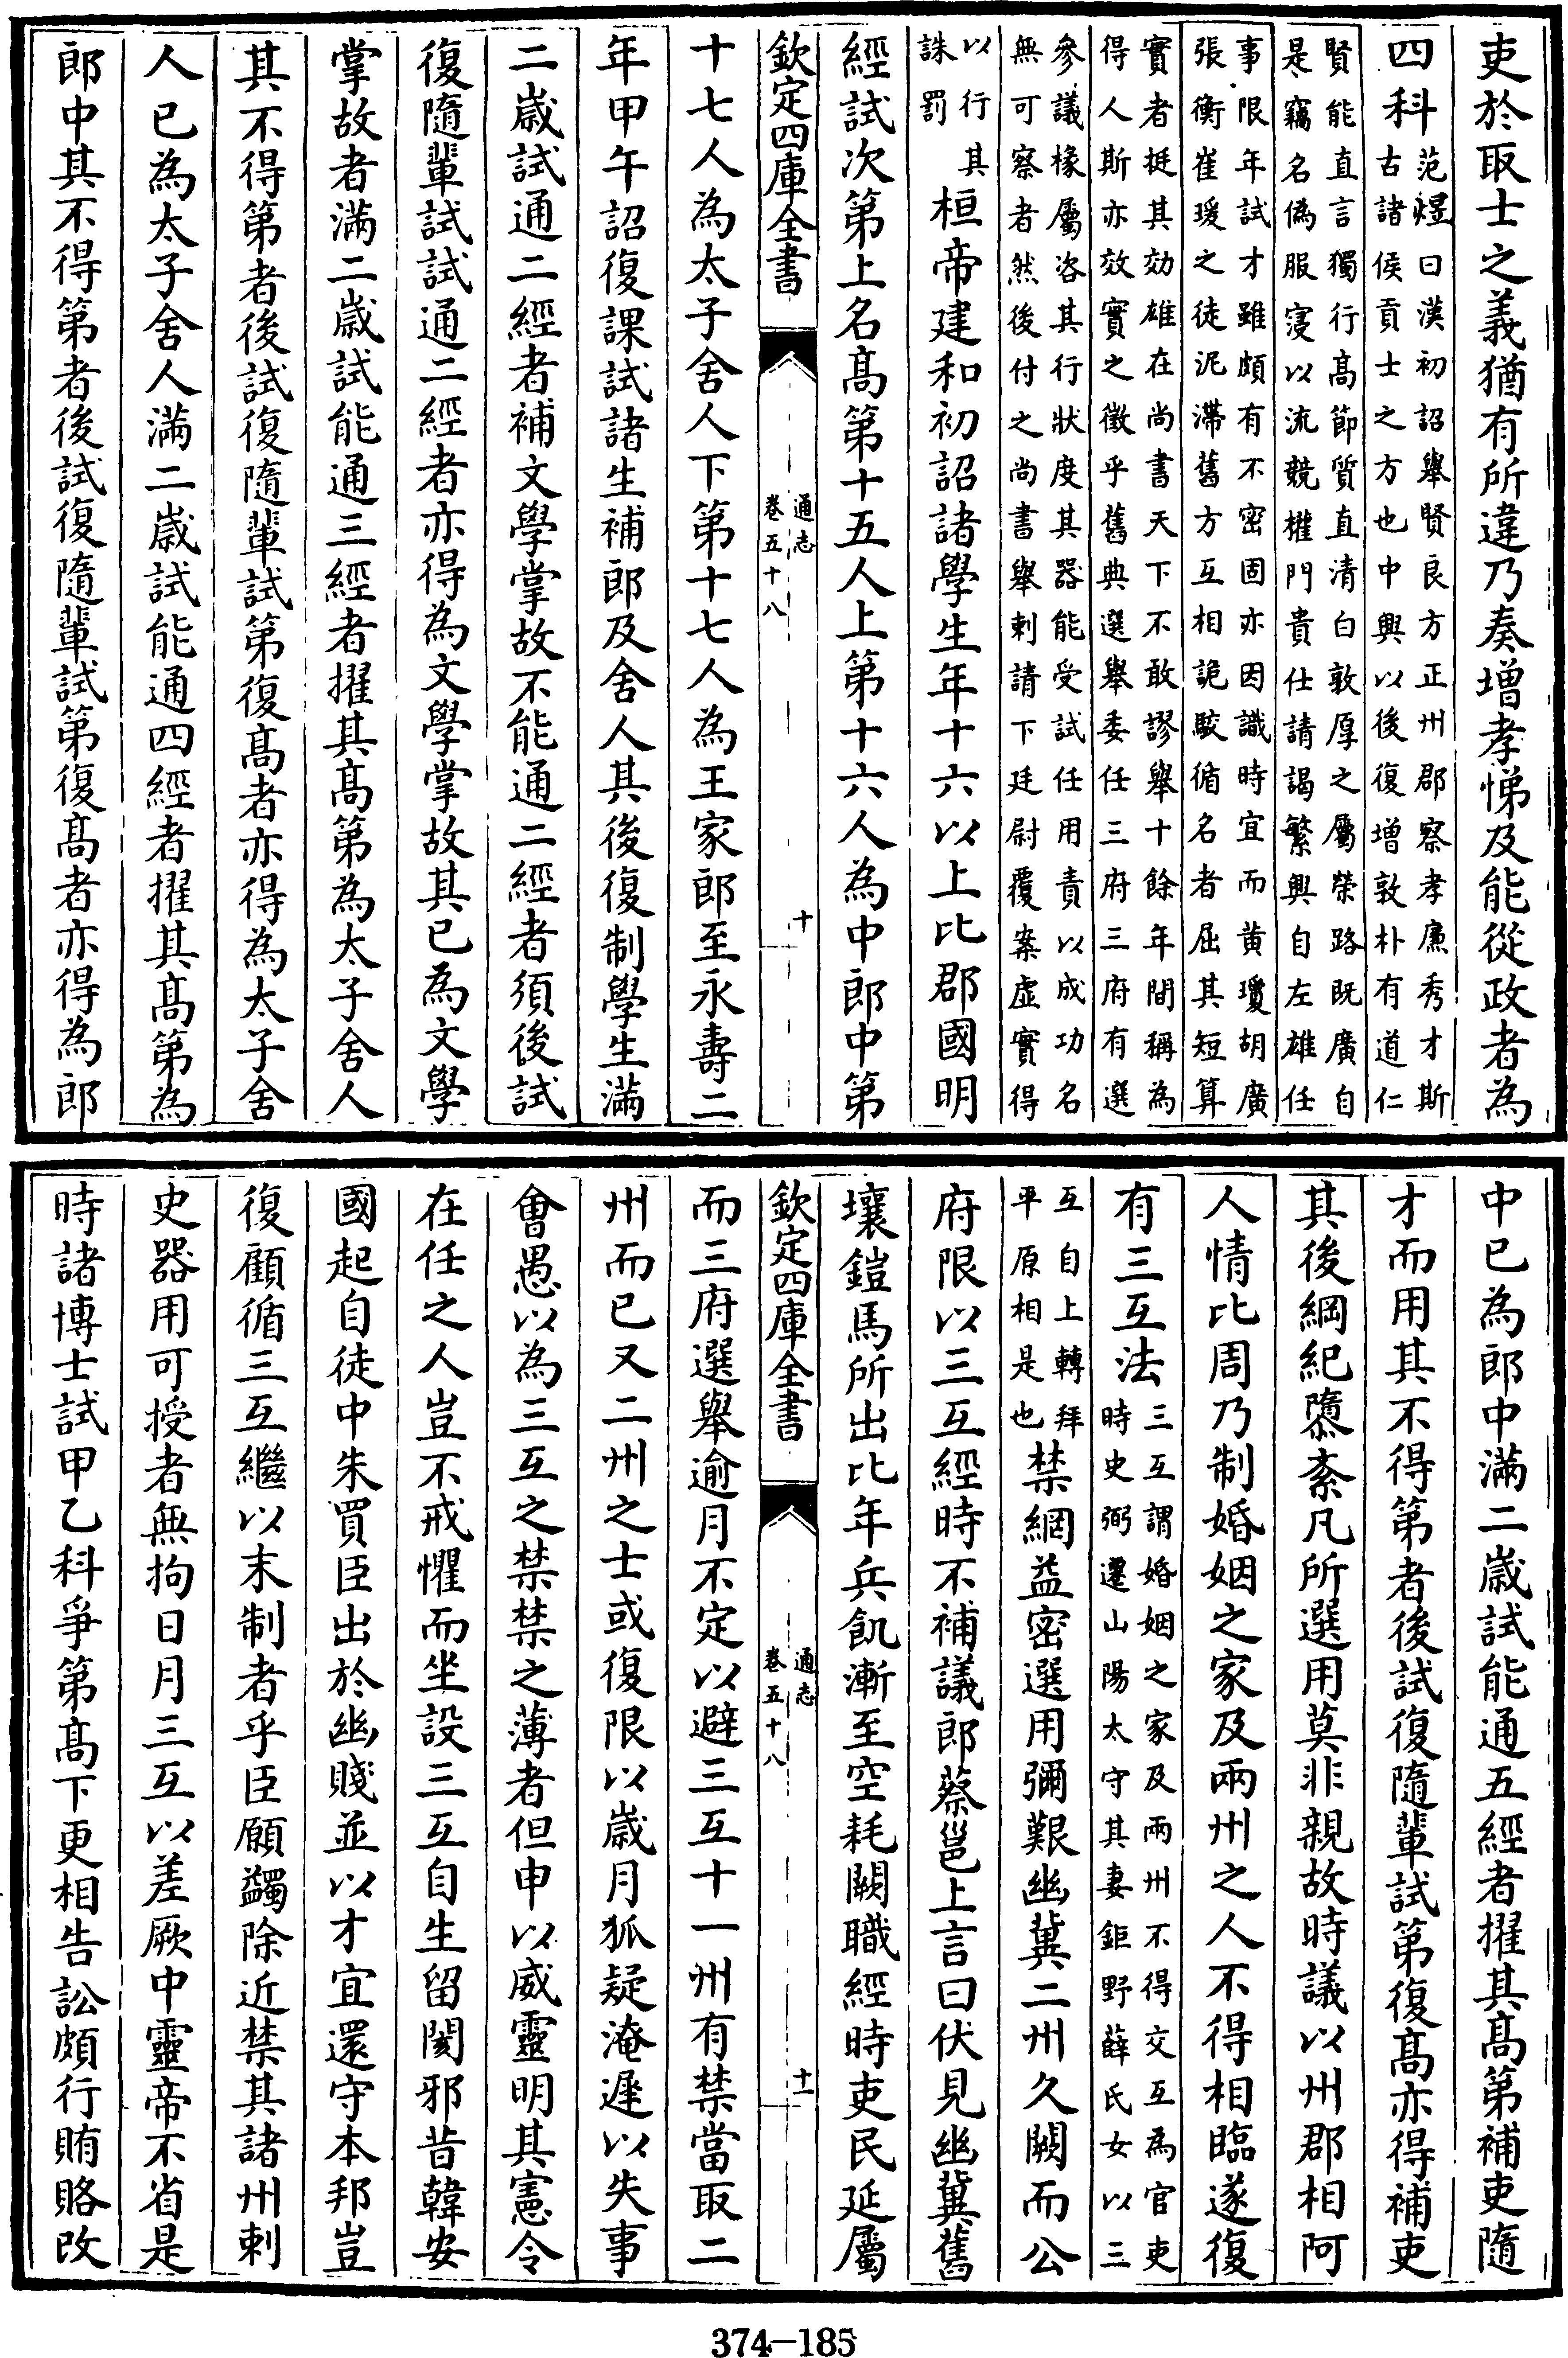 吏於取士之義猶有所違乃奏增孝悌及能從政者為
四科
范煜曰漢初詔舉賢良方正州郡察孝廉秀才斯
古諸侯貢士之方也中興以後復增敦朴有道仁
賢能直言獨行髙節質直清白敦厚之屬榮路既廣自
是竊名偽服寖以流競權門貴仕請謁繁興自左雄任
事限年試才雖頗有不密固亦因識時宜而黄瓊胡廣
張衡崔瑗之徒泥滯舊方互相詭駮循名者屈其短算
實者挺其効雄在尚書天下不敢謬舉十餘年間稱為
得人斯亦效實之徵乎舊典選舉委任三府三府有選
參議椽屬咨其行狀度其器能受試任用責以成功名
無可察者然後付之尚書舉刺請下廷尉覆案虛實得
以行其
誅罰
桓帝建和初詔諸學生年十六以上比郡國明
經試次第上名髙第十五人上第十六人為中郎中第
欽定四庫全書
通志
卷五十八
十
十七人為太子舍人下第十七人為王家郎至永壽二
年甲午詔復課試諸生補郎及舍人其後復制學生滿
二歲試通二經者補文學掌故不能通二經者須後試
復隨輩試試通二經者亦得為文學掌故其已為文學
掌故者滿二歲試能通三經者擢其髙第為太子舍人
其不得第者後試復隨輩試第復髙者亦得為太子舍
人已為太子舍人滿二歲試能通四經者擢其髙第為
郎中其不得第者後試復隨輩試第復髙者亦得為郎
中已為郎中滿二歲試能通五經者擢其髙第補吏隨
才而用其不得第者後試復隨輩試第復髙亦得補吏
其後綱紀隳紊凡所選用莫非親故時議以州郡相阿
人情比周乃制婚姻之家及兩州之人不得相臨遂復
有三互法
三互謂婚姻之家及兩州不得交互為官吏
時史弼遷山陽太守其妻鉅野薛氏女以三
互自上轉拜
平原相是也
禁網益密選用彌艱幽冀二州久闕而公
府限以三互經時不補議郎蔡邕上言曰伏見幽冀舊
壤鎧馬所出比年兵飢漸至空耗闕職經時吏民延屬
欽定四庫全書
通志
卷五十八
十一
而三府選舉逾月不定以避三互十一州有禁當取二
州而已又二州之士或復限以歲月狐疑淹遲以失事
會愚以為三互之禁禁之薄者但申以威靈明其憲令
在任之人豈不戒懼而坐設三互自生留閡邪昔韓安
國起自徒中朱買臣出於幽賤並以才宜還守本邦豈
復顧循三互繼以末制者乎臣願蠲除近禁其諸州刺
史器用可授者無拘日月三互以差厥中靈帝不省是
時諸博士試甲乙科爭第髙下更相告訟頗行賄賂改
374-185